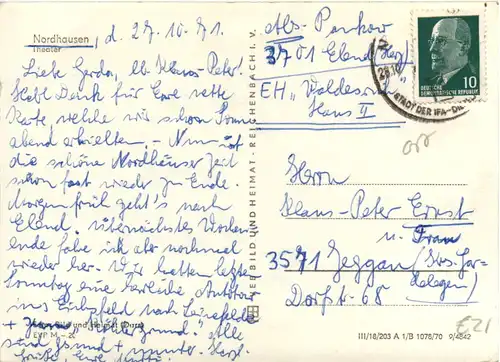 Nordhausen
Theater
, d. 27.10.71.
Liebe Gerda, lb. Klaus-Peter!
Habt Dank für Eure nette
Karte welche wir schon Sonn
abend erhielten. - Nun ist
die schöne Nordhäuser Zeit
schon fast wieder zu Ende.
Morgen früh geht's nach
Elend. Übernächstes Wochen
ende fahre ich aber nochmal
wieder her. Wir hatten letzten
Sonntag eine herrliche Autotour
ins Eichsfeld nach Leinefelde
+ Alle
sind gesund + munter. Herzl.
Grüße, Eure
Bild und Heimat
REICHENBACH I. V.
Abs. Pankow
3701 Elend (Harz)
EH „Waldesruh"
Haus II
DEUTSCHE
DEMOKRATISCHE REPUBLIK
10
STADT DER IFA-DIE
Herrn
Klaus-Peter Ernst
u. Frau
3571 Jeggau (Krs Gar-
delegen)
Dorfstr. 68
III/18/203 A 1/B 1078/70 9/4642
E21